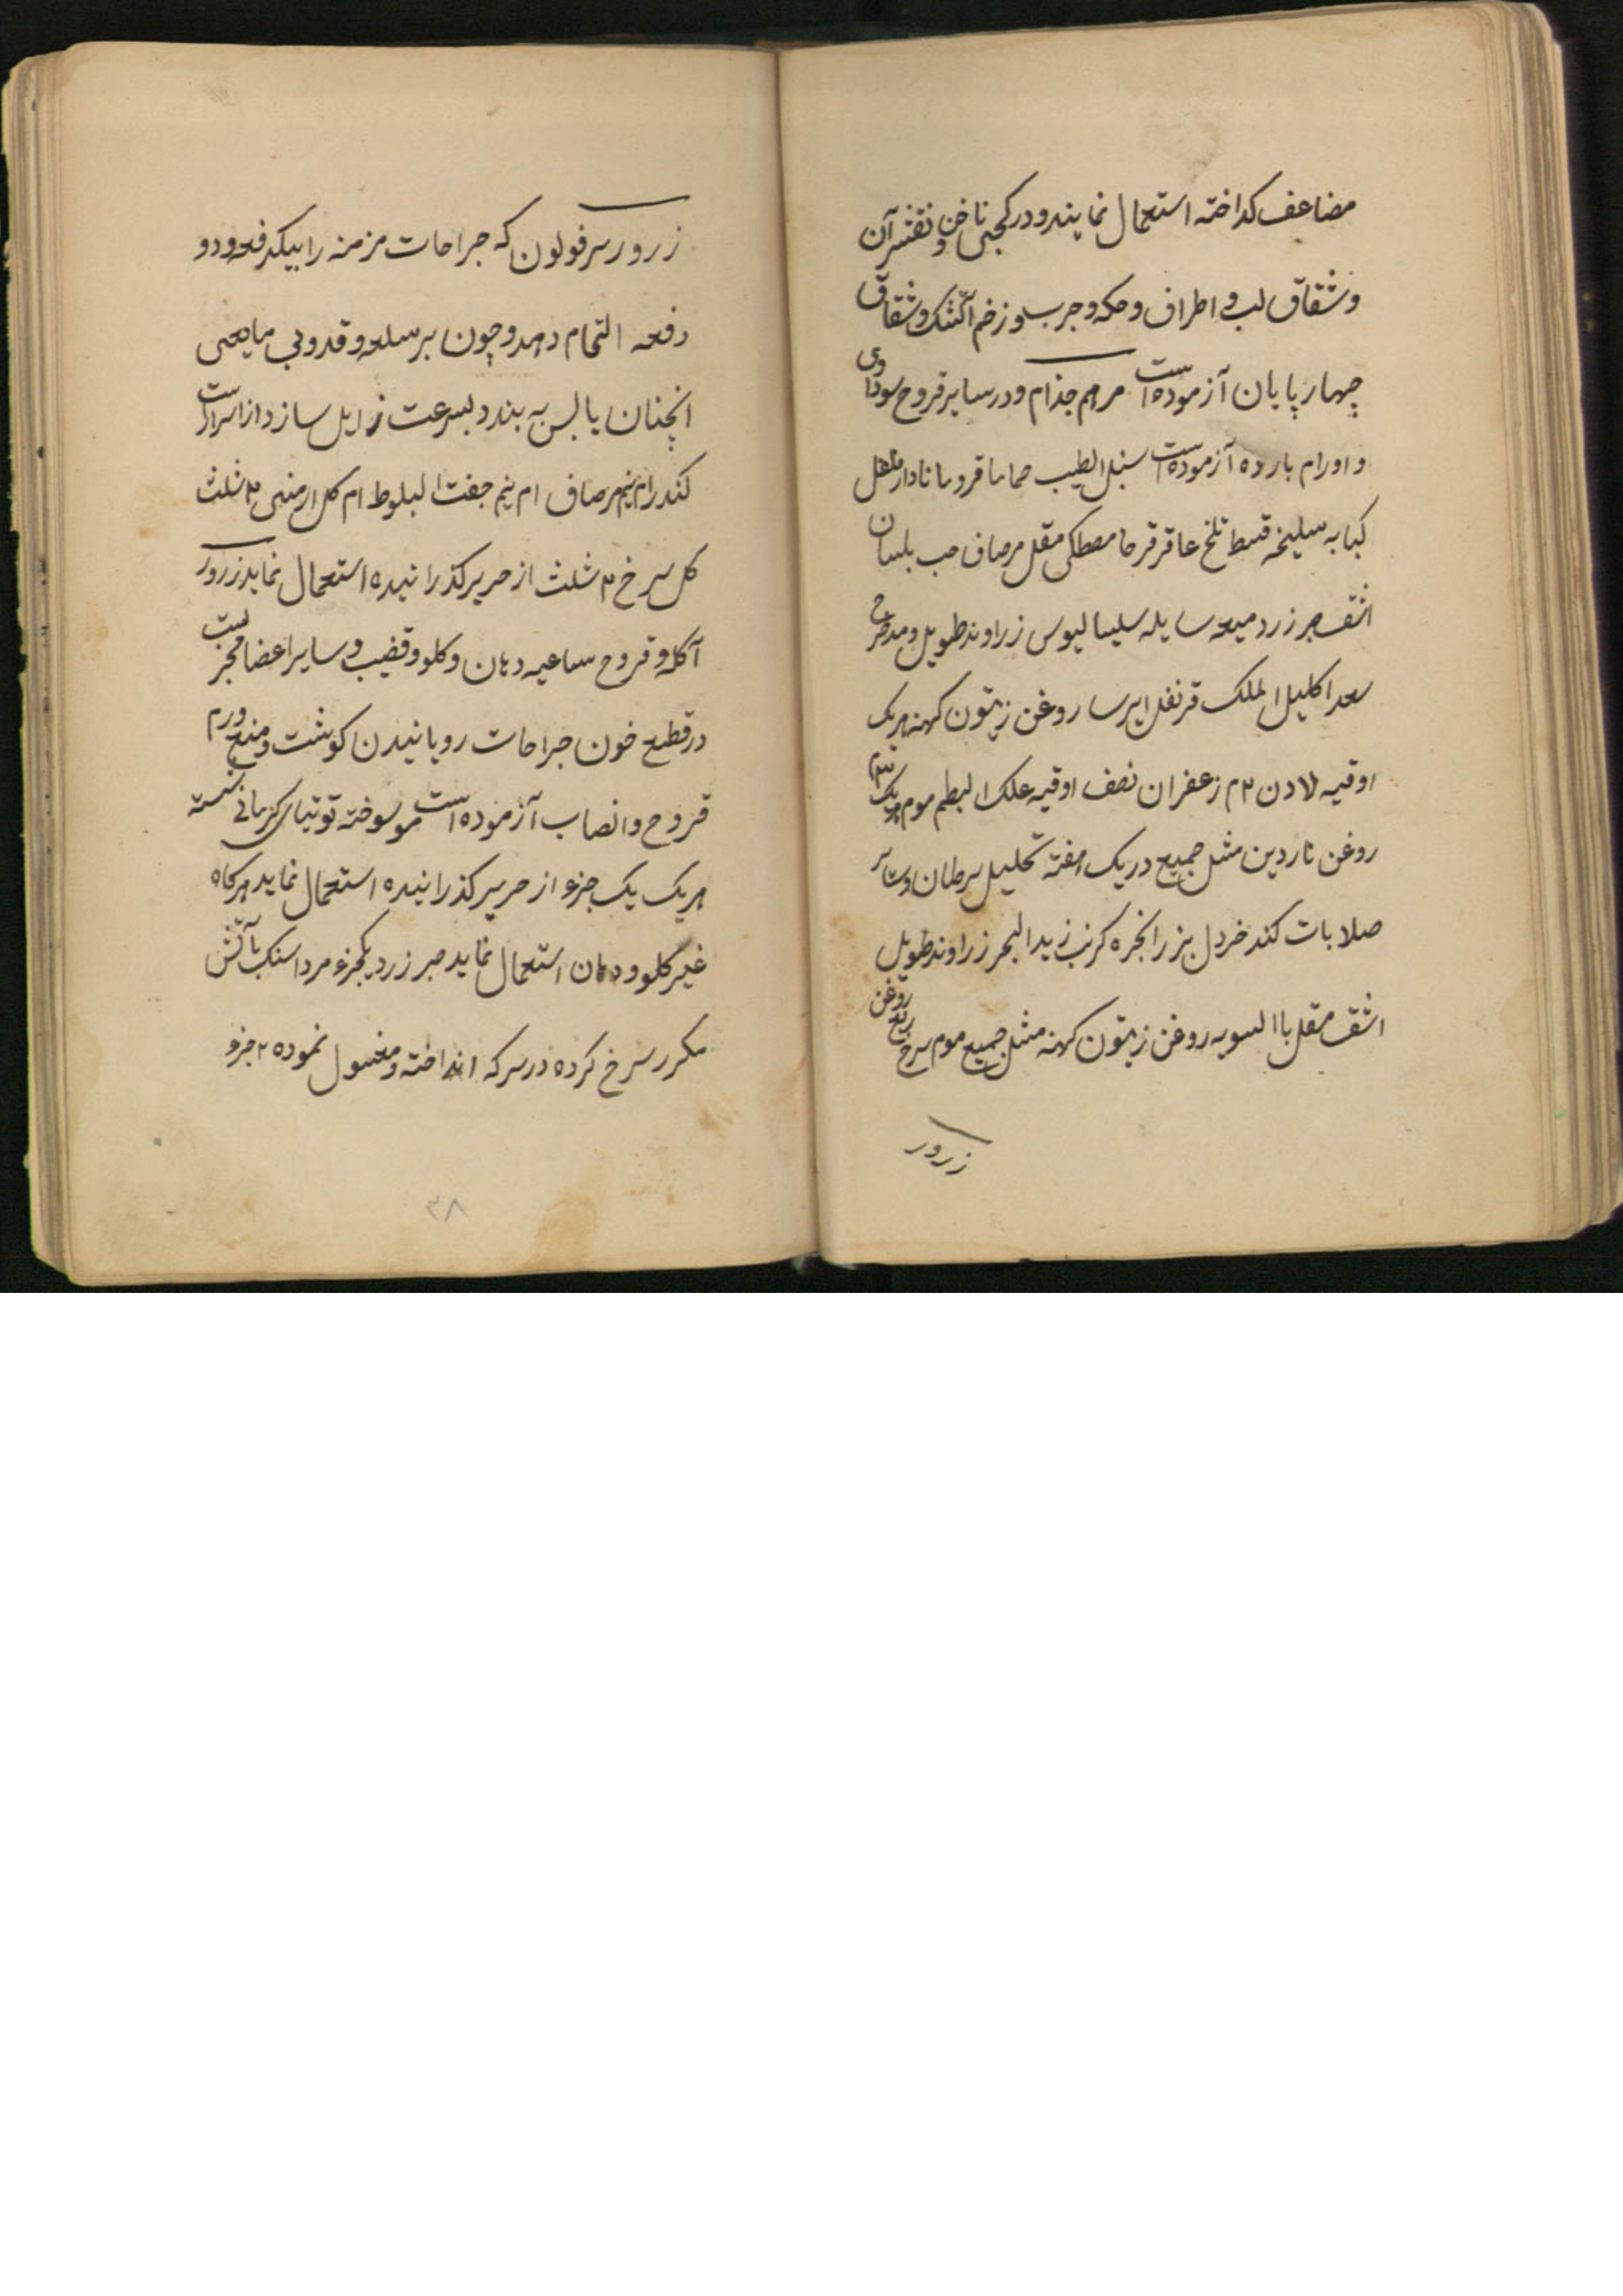 مضاعف کداخته استعمال نمایند و در کجی ناخن و تقشر آن
و شقاق لب و اطراف و حکه و جرب و زخم آتشک و شقاق
چهار پایان آزموده است مرهم جذام و در سایر قروح سوداوی
و اورام بارده آزموده است سنبل الطیب حماما قردمانا دارفلفل
کبابه سلیخه قسط تلخ عاقرقرحا مصطکی مقل مرصاف حب بلسان
اشق صبر زرد میعه سایله سلیسالیوس زراوند طویل و مدحرج
سعد اکلیل الملک قرنفل ایرسا روغن زیتون کهنه هریک
اوقیه لادن ۲م زعفران نصف اوقیه علک البطم موم هریک
روغن ناردین مثل جمیع در یک هفته تحلیل سرطان و سائر
صلابات کند خردل بزر انجره کرنب زبد البحر زراوند طویل
اشق مقل باالسویه روغن زیتون کهنه مثل جمیع موم سرخ ربع روغن
زرور
زرور سرفولون که جراحات مزمنه را بیکدفعه و دو
دفعه التحام دهد و چون بر سلعه و قدوبی مایعی
انچنان یابس به بندد بسرعت زایل سازد از اسرار است
کندر ام نیم مرصاف ام نیم جفت البلوط ام کل ارمنی ۲ ثلث
کل سرخ ۲ ثلث از حریر کذرانیده استعمال نماید زرور
آکله و قروح ساعیه دهان و کلو و قضیب و سایر اعضا مجربست
در قطع خون جراحات رویانیدن کوشت و منع ورم
قروح و انصاب آزموده است مو سوخته توتیای کرمانی شسته
هریک یک جزء از حریر کذرانیده استعمال نماید هرکاه
غیر کلو و دهان استعمال نماید صبر زرد یکجزء مرداسنک بآتش
مکرر سرخ کرده در سرکه انداخته و مغسول نموده ۲ جزء
۳۸